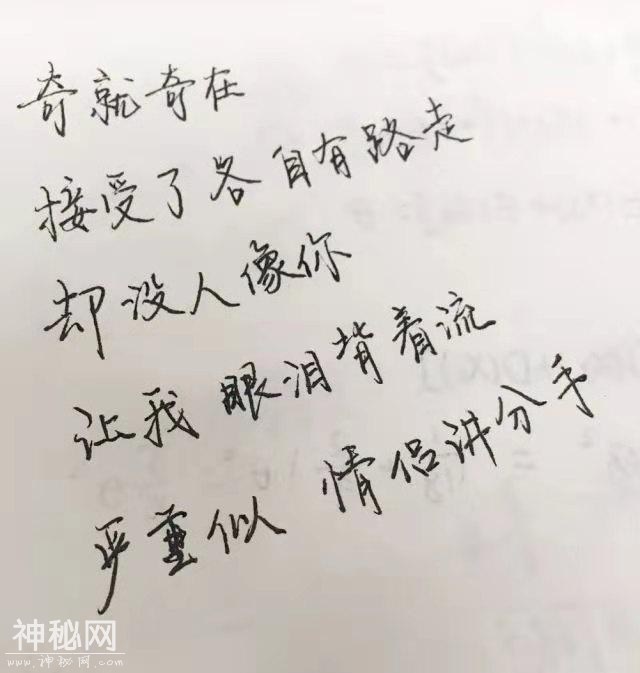 奇就奇在
接受了各自有路走
却没人像你
让我眼泪背着流
严重似情侣讲分手
神秘网
www.神秘网.com